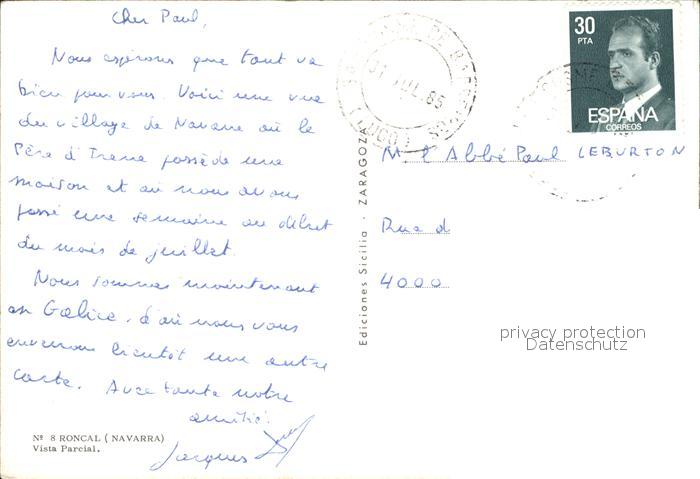 Cher Paul,
Nous espérons que tout va
bien pour vous. Voici une vue
du village de Navarre où le
Père d'Irene possède une
maison et où nous avons
passé une semaine au début
du mois de juillet.
Nous sommes maintenant
en Galice, d'où nous vous
enverrons bientôt une autre
carte. Avec toute notre
amitié.
Jacques
Nº 8 RONCAL (NAVARRA)
Vista Parcial.
Ediciones Sicilia · ZARAGOZA
31 JUL. 85
(LUGO)
30
PTA
ESPAÑA
CORREOS
M. l'Abbé Paul LEBURTON
Rue d
4000
privacy protection
Datenschutz